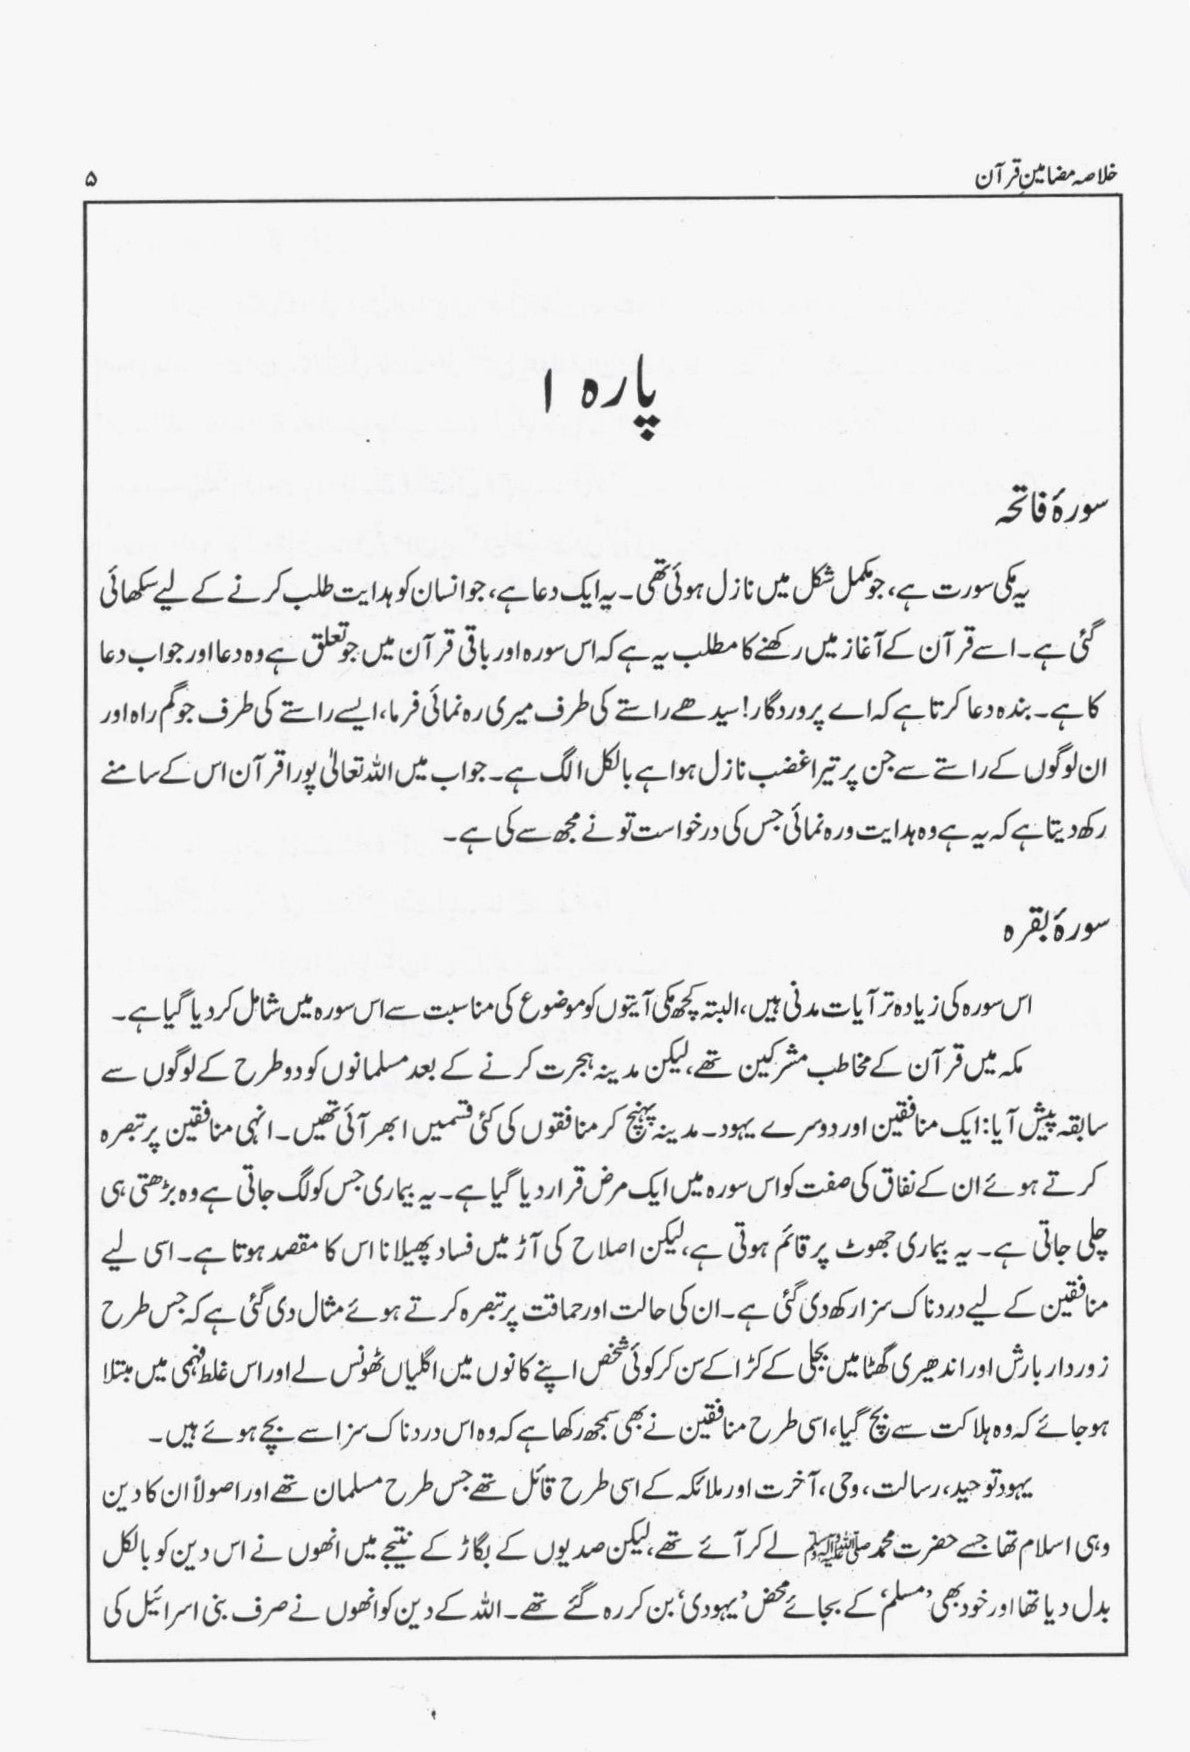 خلاصہ مضامینِ قرآن
۵
پارہ ۱
سورۂ فاتحہ
یہ مکی سورت ہے، جو مکمل شکل میں نازل ہوئی تھی۔ یہ ایک دعا ہے، جو انسان کو ہدایت طلب کرنے کے لیے سکھائی
گئی ہے۔ اسے قرآن کے آغاز میں رکھنے کا مطلب یہ ہے کہ اس سورہ اور باقی قرآن میں جو تعلق ہے وہ دعا اور جواب دعا
کا ہے۔ بندہ دعا کرتا ہے کہ اے پروردگار! سیدھے راستے کی طرف میری رہ نمائی فرما، ایسے راستے کی طرف جو گم راہ اور
ان لوگوں کے راستے سے جن پر تیرا غضب نازل ہوا ہے بالکل الگ ہے۔ جواب میں اللہ تعالیٰ پورا قرآن اس کے سامنے
رکھ دیتا ہے کہ یہ ہے وہ ہدایت و رہ نمائی جس کی درخواست تو نے مجھ سے کی ہے۔
سورۂ بقرہ
اس سورہ کی زیادہ تر آیات مدنی ہیں، البتہ کچھ مکی آیتوں کو موضوع کی مناسبت سے اس سورہ میں شامل کر دیا گیا ہے۔
مکہ میں قرآن کے مخاطب مشرکین تھے، لیکن مدینہ ہجرت کرنے کے بعد مسلمانوں کو دو طرح کے لوگوں سے
سابقہ پیش آیا: ایک منافقین اور دوسرے یہود۔ مدینہ پہنچ کر منافقوں کی کئی قسمیں ابھر آئی تھیں۔ انہی منافقین پر تبصرہ
کرتے ہوئے ان کے نفاق کی صفت کو اس سورہ میں ایک مرض قرار دیا گیا ہے۔ یہ بیماری جس کو لگ جاتی ہے وہ بڑھتی ہی
چلی جاتی ہے۔ یہ بیماری جھوٹ پر قائم ہوتی ہے، لیکن اصلاح کی آڑ میں فساد پھیلانا اس کا مقصد ہوتا ہے۔ اسی لیے
منافقین کے لیے دردناک سزا رکھ دی گئی ہے۔ ان کی حالت اور حماقت پر تبصرہ کرتے ہوئے مثال دی گئی ہے کہ جس طرح
زوردار بارش اور اندھیری گھٹا میں بجلی کے کڑاکے سن کر کوئی شخص اپنے کانوں میں انگلیاں ٹھونس لے اور اس غلط فہمی میں مبتلا
ہو جائے کہ وہ ہلاکت سے بچ گیا، اسی طرح منافقین نے بھی سمجھ رکھا ہے کہ وہ اس دردناک سزا سے بچے ہوئے ہیں۔
یہود توحید، رسالت، وحی، آخرت اور ملائکہ کے اسی طرح قائل تھے جس طرح مسلمان تھے اور اصولاً ان کا دین
وہی اسلام تھا جسے حضرت محمد ﷺ لے کر آئے تھے، لیکن صدیوں کے بگاڑ کے نتیجے میں انھوں نے اس دین کو بالکل
بدل دیا تھا اور خود بھی ’مسلم‘ کے بجائے محض ’یہودی‘ بن کر رہ گئے تھے۔ اللہ کے دین کو انھوں نے صرف بنی اسرائیل کی